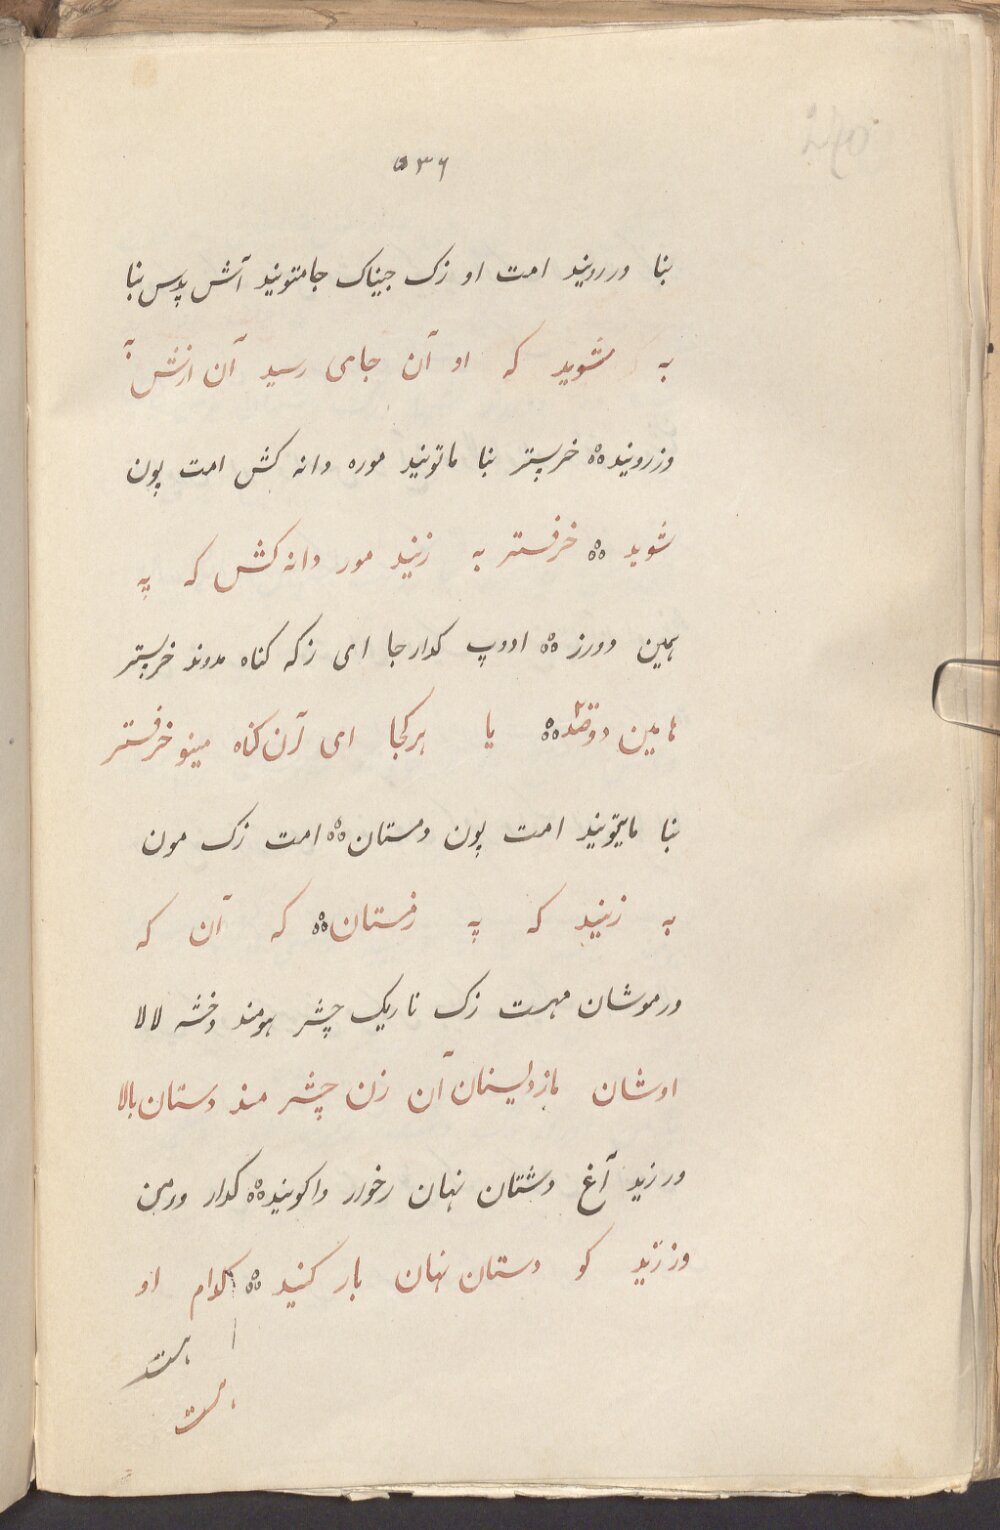 ٥٣٦
بنا ورروند امت او زک جیناک جامتونید آتش پدس بنا
به شوید که او آن جای رسید آن ارزش به
وزروند ٥٥ خرپستر بنا ماتونید موره دانه کش امت پون
شوید ٥٥ خرفستر به زنید مور دانه کش که په
همین دورز ٥٥ ادوپ کدارجا ای زکه کناه مدوند خرپستر
هامین دو ٥٥ یا هرکجا ای آن کناه مینو خرفستر
بنا مایتونید امت پون دمستان ٥٥ امت زک مون
به زنید که په زمستان ٥٥ که آن که
ورموشان مهمت زک ناریک چشر هومند دخشه لالا
اوشان مازدیسنان آن زن چشر مند دستان بالا
ورزید آغ دشتان نهان رخوار واکونید ٥٥ کدار ورمن
وززید کو دستان نهان بار کنید ٥٥ کدام او
هست
هست